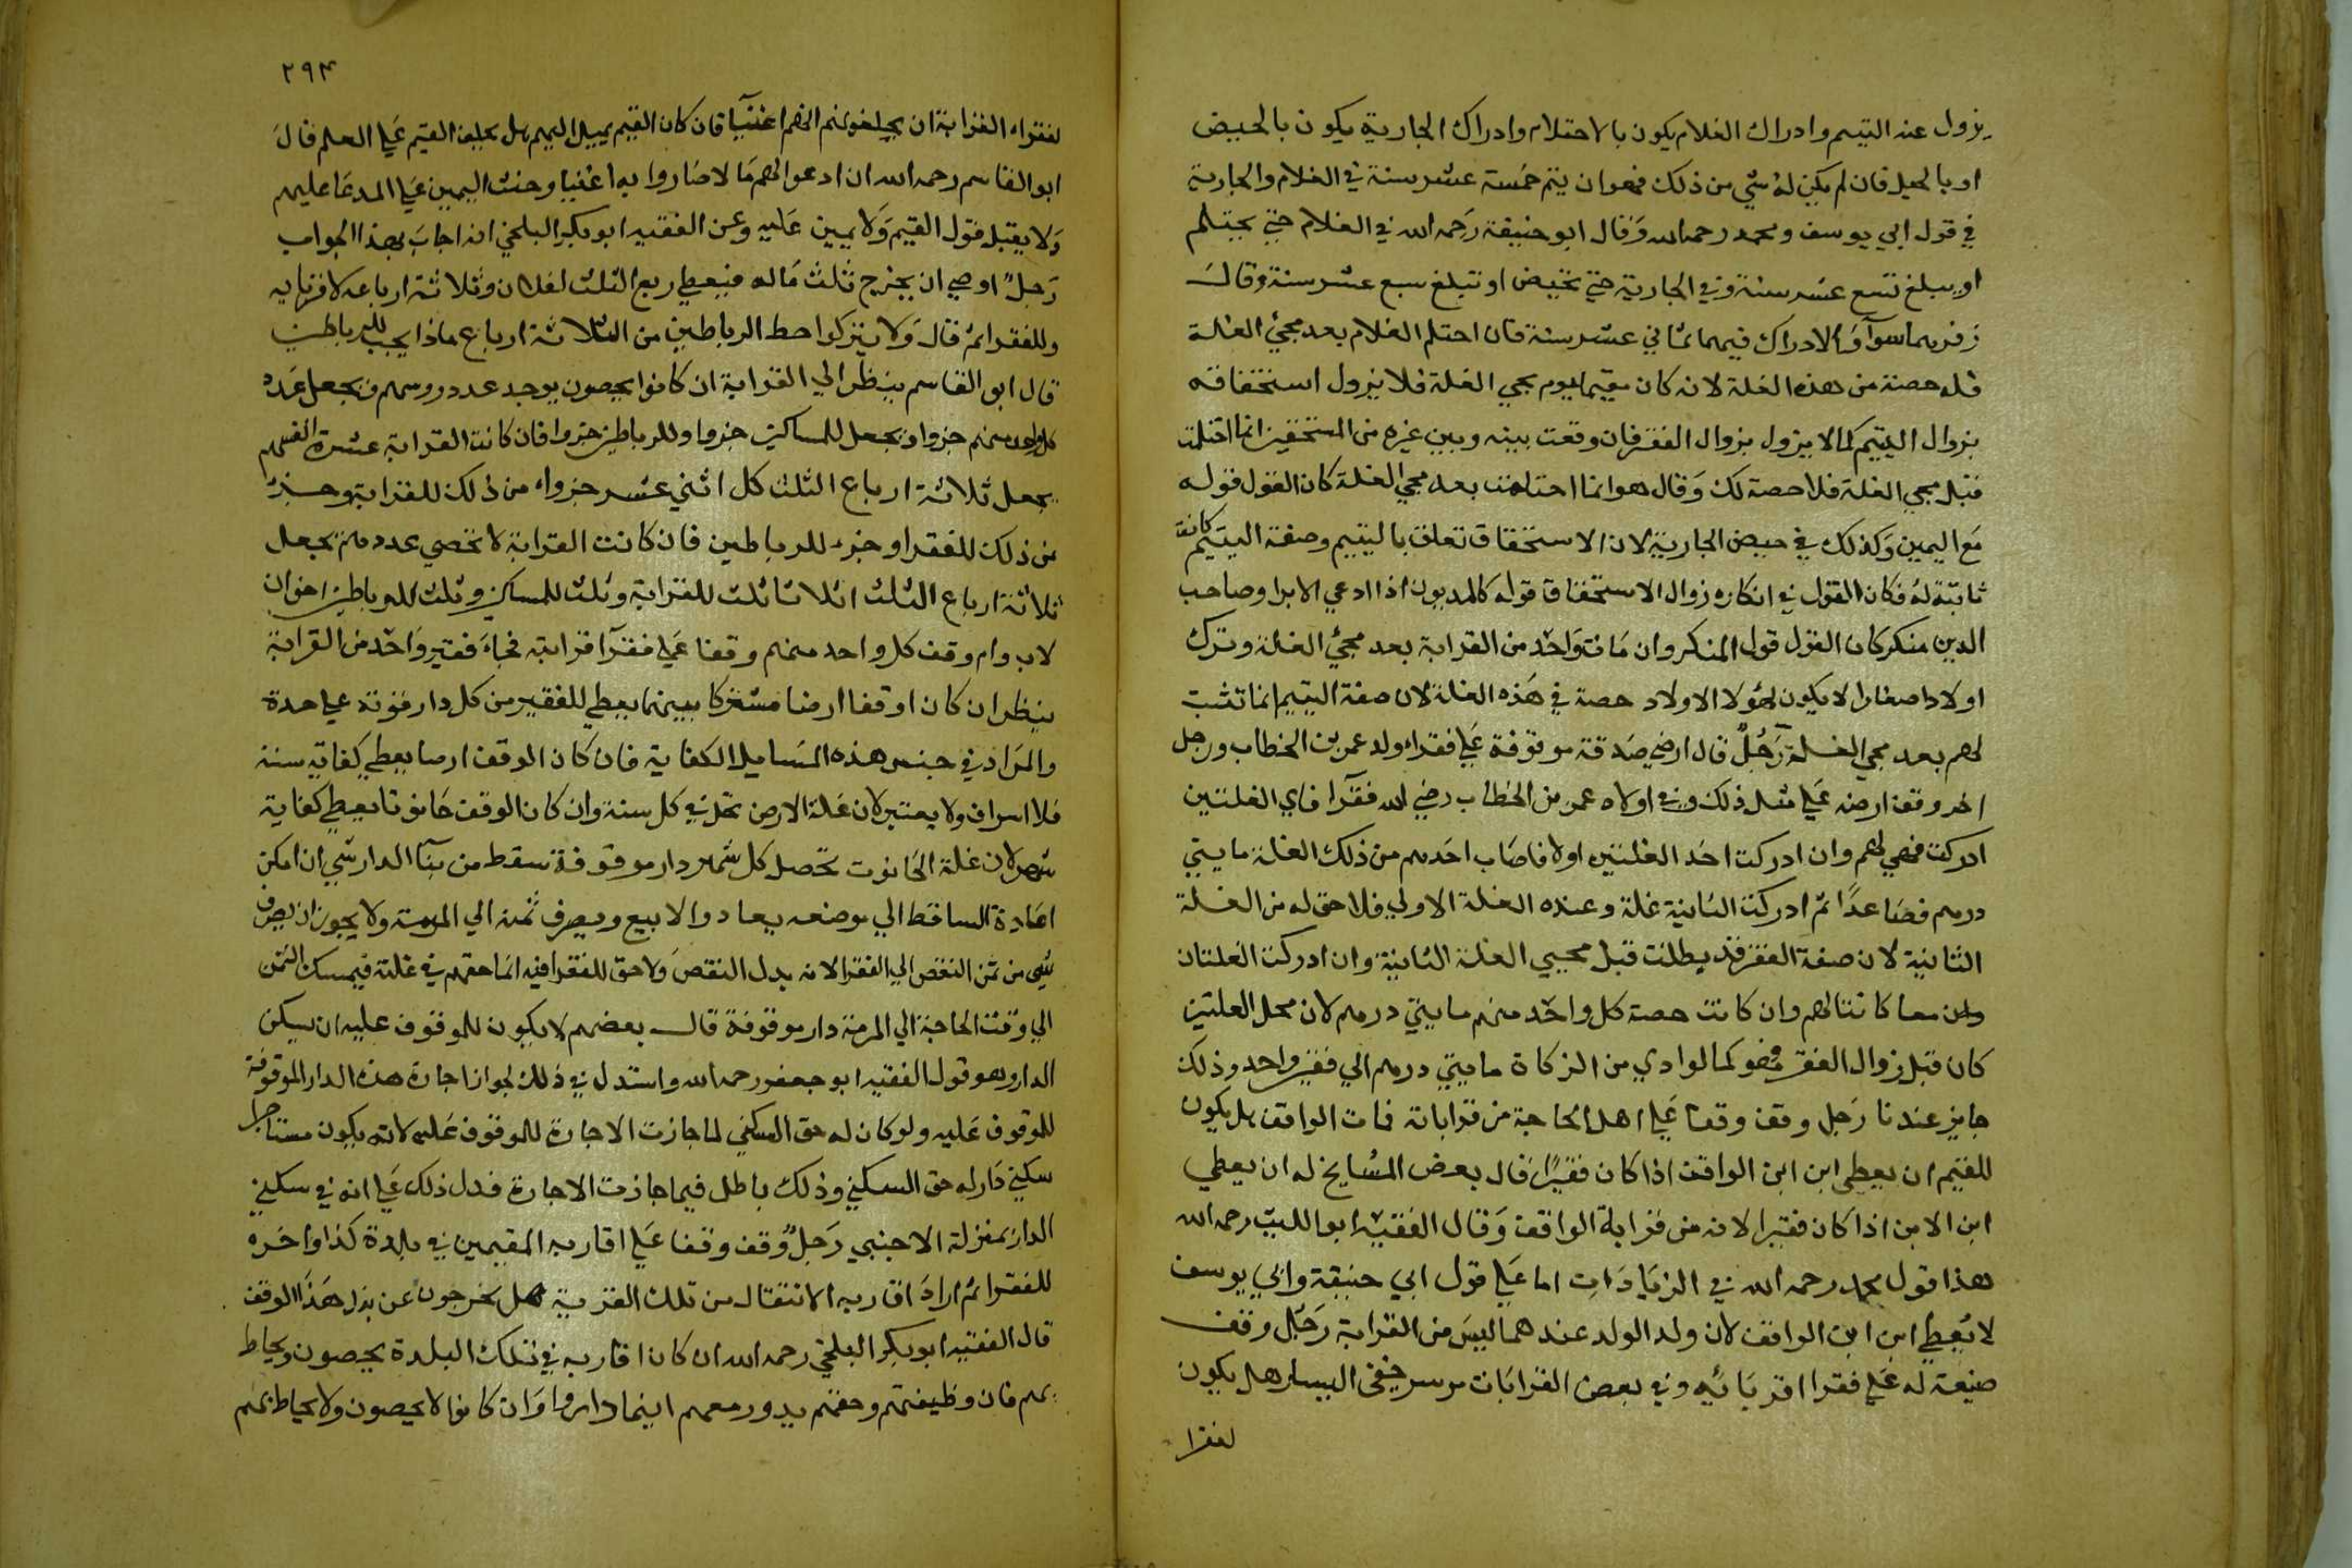 يزول عنه اليتيم وادراك الغلام يكون بالاحتلام وادراك الجارية يكون بالحيض
او بالحبل فان لم يكن له شي من ذلك فهو ان يتم خمسة عشر سنة في الغلام والجارية
في قول ابي يوسف ومحمد رحمه الله وقال ابو حنيفة رحمه الله في الغلام حتي يحتلم
او يبلغ تسع عشر سنة وفي الجارية حتي تحيض او تبلغ سبع عشر سنة وقال
زفر هما سوآ والادراك فيهما ثماني عشر سنة فان احتلم الغلام بعد مجئ الغلة
فله حصته من هذه الغلة لانه كان يتيما يوم مجي الغلة فلا يزول استحقاقه
بزوال اليتيم كما لا يزول بزوال الفقر فان وقعت بينه وبين غيره من المستحقين انما احتلمت
قبل مجي الغلة فلا حصة لك وقال هو انما احتلمت بعد مجي الغلة كان القول قوله
مع اليمين وكذلك في حيض الجارية لان الاستحقاق تعلق باليتيم وصفة اليتيم كانت
ثابتة له فكان القول في انكاره زوال الاستحقاق قوله كالمديون اذا ادعي الابرا وصاحب
الدين منكر كان القول قول المنكر وان مات واحد من القرابة بعد مجئ الغلة وترك
اولادا صغارا لا يكون لهؤلا الاولاد حصة في هذه الغلة لان صفة اليتيم انما تثبت
لهم بعد مجي الغلة رجل قال ارضي صدقة موقوفة علي فقراء ولد عمر بن الخطاب ورجل
اخر وقف ارضه علي مثل ذلك وفي اولاد عمر من الخطاب رضي الله فقرآ فاي الغلتين
ادركت فهي لهم وان ادركت احد الغلتين اولا فاصاب احدهم من ذلك الغلة مايتي
درهم فصاعدا ثم ادركت الثانية غلة وعنده الغلة الاولي فلا حق له من الغلة
الثانية لان صفة الفقر قد بطلت قبل مجيي الغلة الثانية وان ادركت الغلتان
معا كانتا لهم وان كانت حصة كل واحد منهم مايتي درهم لان محل الغلتين
كان قبل زوال الفقر فهو كما لو ادي من الزكاة مايتي درهم الي فقير واحد وذلك
جايز عندنا رجل وقف وقفا علي اهل الحاجة من قراباته فمات الواقف هل يكون
للقيم ان يعطي ابن ابن الواقف اذا كان فقيرا قال بعض المشايخ له ان يعطي
ابن الابن اذا كان فقيرا لانه من قرابة الواقف وقال الفقيه ابو الليث رحمه الله
هذا قول محمد رحمه الله في الزيادات اما علي قول ابي حنيفة وابي يوسف
لا يعطي ابن ابن الواقف لان ولد الولد عندهما ليس من القرابة رجل وقف
ضيعة له علي فقرا اقربائه وفي بعض القرابات موسر خفي اليسار هل يكون
لفقرا
٢٩٤
لفقراء القرابة ان يحلفو منهم انهم اغنيآ فان كان القيم يميل اليهم هل يحلف القيم علي العلم قال
ابو القاسم رحمه الله ان ادعوا لهم مالا صاروا به اغنيا وحنث اليمين علي المدعا عليهم
ولا يقبل قول القيم ولا يمين عليه وعن الفقيه ابو بكر البلخي انه اجاب بهذا الجواب
رجل اوصي ان يخرج ثلث ماله فيعطي ربع الثلث لفلان وثلاثة ارباعه لاقربايه
وللفقرا ثم قال ولا تتركوا حظ الرباطين من الثلاثة ارباع ماذا يجب للرباطين
قال ابو القاسم ينظر الي القرابة ان كانوا يحصون يوجد عدد روسهم فيجعل عدد
كل واحد منهم جزوا ويجعل للمساكين جزوا وللرباطين جزوا فان كانت القرابة عشرة انفسهم
يجعل ثلاثة ارباع الثلث كل اثني عشر جزواء من ذلك للقرابة وجزء
من ذلك للفقرا وجزء للرباطين فان كانت القرابة لا تحصي عددهم يجعل
ثلاثة ارباع الثلث اثلاثا ثلث للقرابة وثلث للمساكين وثلث للرباطين اخوان
لاب وام وقف كل واحد منهم وقفا علي فقرآ قرابته فجاء فقير واحد من القرابة
ينظر ان كان اوقفا ارضا مشتركا بينهما يعطي للفقير من كل دار قوته علي حدة
والمراد في جنس هذه المسايل الكفاية فان كان الوقف ارضا يعطي كفاية سنة
فلا اسراف ولا يعتبر لان غلة الارض تحل في كل سنة وان كان الوقف حانوتا يعطي كفاية
شهر لان غلة الحانوت تحصل كل شهر دار موقوفة سقط من بنآ الدار شي ان امكن
اعادة الساقط الي موضعه يعاد والا بيع ويصرف ثمنه الي المرمة ولا يجوز ان يصرف
شي من ثمن النقض الي الفقرا لانه بدل النقض ولا حق للفقرا فيه انما حقهم في غلته فيمسك الثمن
الي وقت الحاجة الي المرمة دار موقوفة قال بعضهم لا يكون للموقوف عليه ان يسكن
الدار وهو قول الفقيه ابو جعفر رحمه الله واستدل في ذلك لجواز اجارة هذه الدار الموقوفة
للموقوف عليه ولو كان له حق السكني لما جازت الاجارة للموقوف عليه لانه يكون مستاجرا
سكني دار له حق السكني وذلك باطل فيما جازت الاجارة فدل ذلك علي انه في سكني
الدار بمنزلة الاجنبي رجل وقف وقفا علي اقاربه المقيمين في بلدة كذا واخره
للفقرا ثم اراد اقاربه الانتقال من تلك القرية هل يخرجون عن هذا الوقف
قال الفقيه ابو بكر البلخي رحمه الله ان كان اقاربه في تلك البلدة يحصون ويحاط
بهم فان وظيفتهم وحقهم يدور معهم اينما داروا وان كانوا لا يحصون ولا يحاط بهم